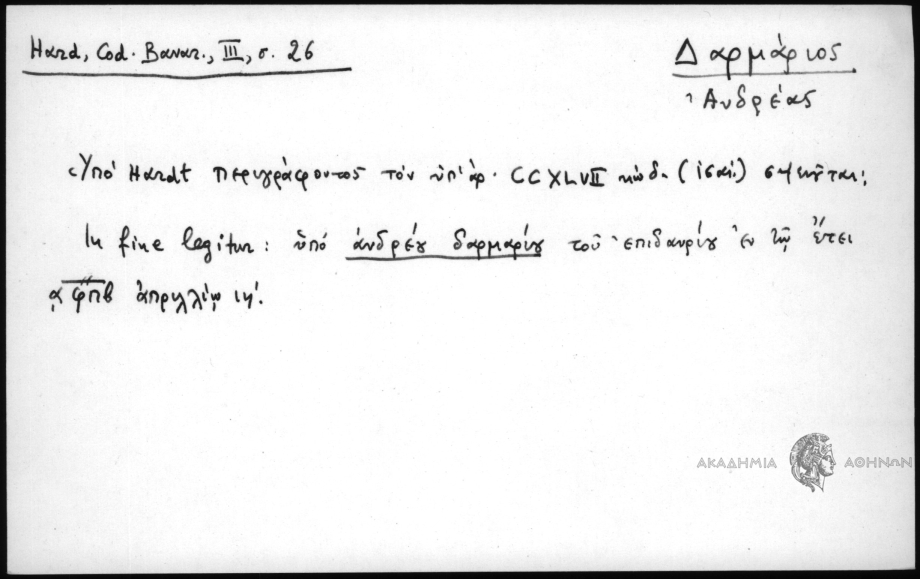 Hard, Cod. Bavar., III, σ. 26
Δαρμάριος
Ἀνδρέας
Ὑπό Hardt περιγράφοντος τόν ὑπ' ἀρ. CCXLVII κώδ. (ἰσαι.) σημειοῦται:
In fine legitur: ὑπό ἀνδρέου δαρμαρίου τοῦ ἐπιδαυρίου ἐν τῷ ἔτει
͵αφπβ ἀπριλλίῳ ιη'.
ΑΚΑΔΗΜΙΑ ΑΘΗΝΩΝ